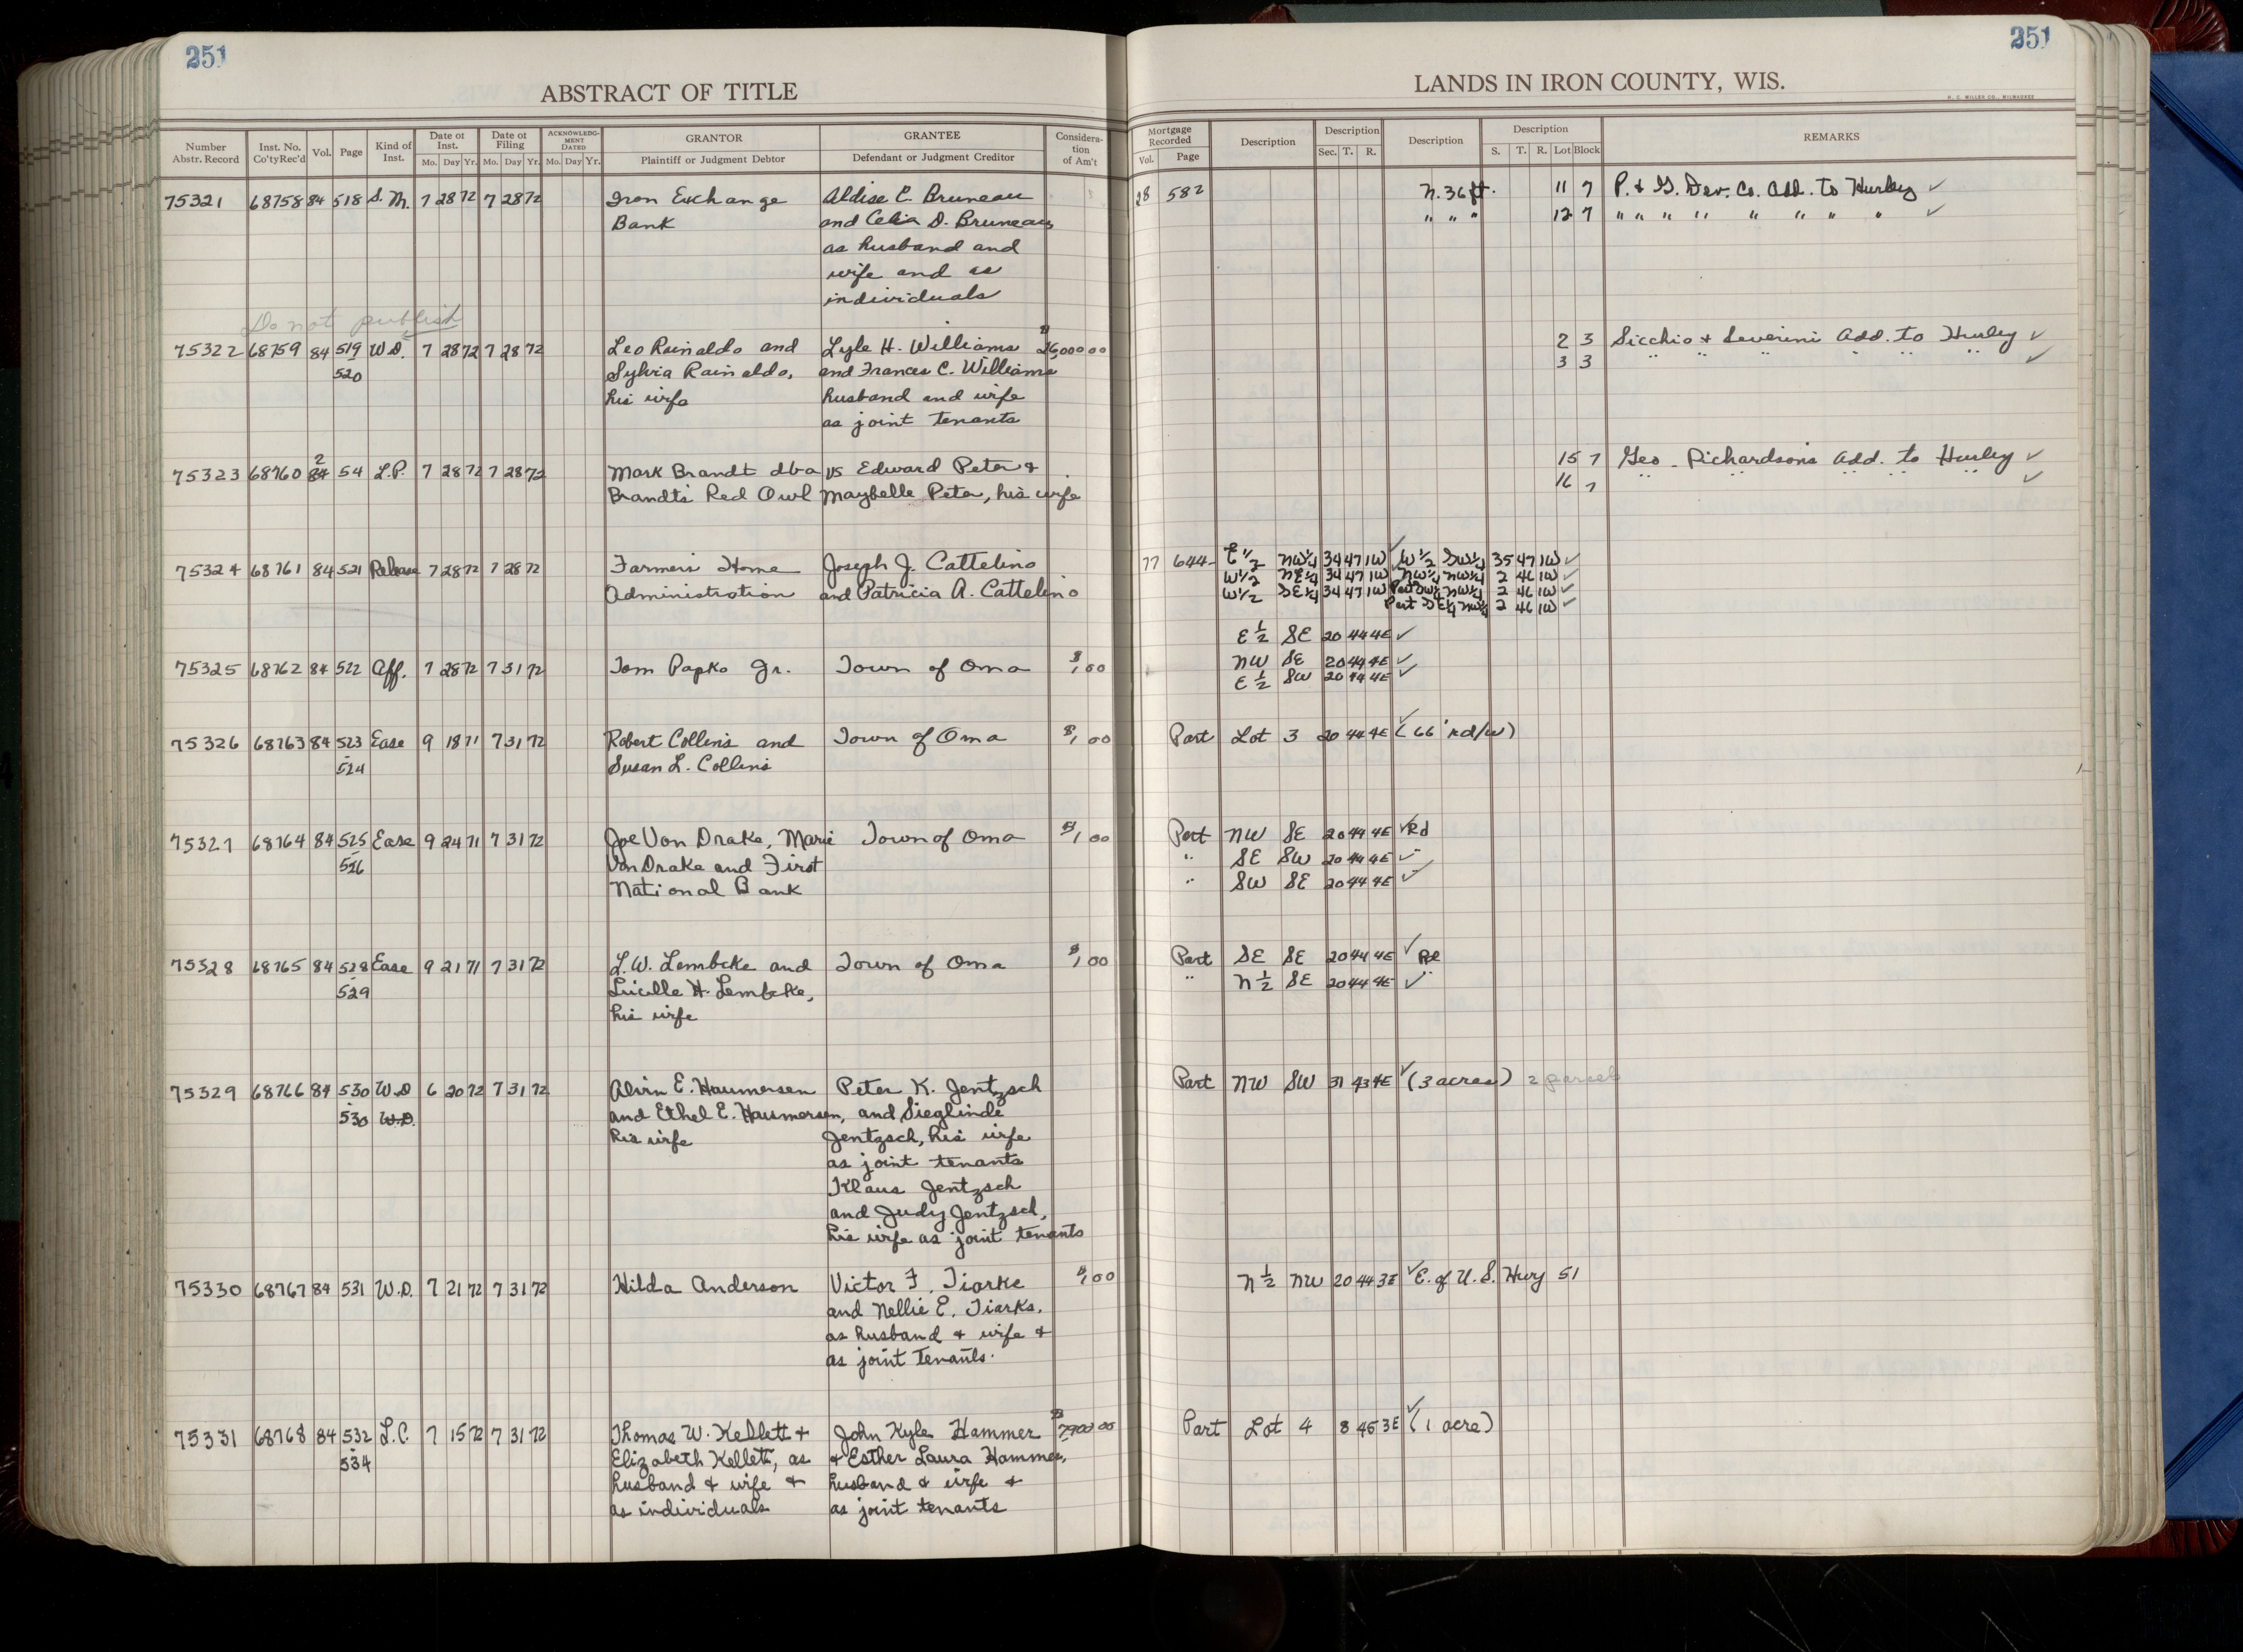 251
ABSTRACT OF TITLE
Number Abstr. Record Inst. No. Co'ty Rec'd Vol. Page Kind of Inst. Date of Inst. Mo. Day Yr. Date of Filing Mo. Day Yr. ACKNOWLEDGMENT DATED Mo. Day Yr. GRANTOR Plaintiff or Judgment Debtor GRANTEE Defendant or Judgment Creditor Consideration of Am't
75321 68758 84 518 S.M. 7 28 72 7 28 72 Iron Exchange Aldise E. Bruneau
Bank and Celia D. Bruneau,
as husband and
wife and as
individuals
Do not publish
75322 68759 84 519 W.D. 7 28 72 7 28 72 Leo Rainaldo and Lyle H. Williams $26,000 00
520 Sylvia Rainaldo, and Frances C. Williams
his wife husband and wife
as joint tenants
2
75323 68760 84 54 L.P. 7 28 72 7 28 72 Mark Brandt dba vs Edward Peter &
Brandt's Red Owl Maybelle Peter, his wife
75324 68761 84 521 Release 7 28 72 7 28 72 Farmers Home Joseph J. Cattelino
Administration and Patricia A. Cattelino
75325 68762 84 522 Aff. 7 28 72 7 31 72 Tom Papko Jr. Town of Oma $1,00
75326 68763 84 523 Ease 9 18 71 7 31 72 Robert Collins and Town of Oma $1,00
524 Susan L. Collins
75327 68764 84 525 Ease 9 24 71 7 31 72 Joe Von Drake, Marie Town of Oma $1,00
526 Von Drake and First
National Bank
75328 68765 84 528 Ease 9 21 71 7 31 72 L.W. Lembcke and Town of Oma $1,00
529 Lucille H. Lembcke,
his wife
75329 68766 84 530 W.D 6 20 72 7 31 72 Alvin E. Haumersen Peter K. Jentzsch
530 W.D. and Ethel E. Haumersen, and Sieglinde
his wife Jentzsch, his wife
as joint tenants
Klaus Jentzsch
and Judy Jentzsch,
his wife as joint tenants
75330 68767 84 531 W.D. 7 21 72 7 31 72 Hilda Anderson Victor F. Tiarks $1,00
and Nellie E. Tiarks,
as husband & wife &
as joint tenants.
75331 68768 84 532 L.C. 7 15 72 7 31 72 Thomas W. Kellett & John Kyle Hammer $7900 00
534 Elizabeth Kellett, as & Esther Laura Hammer,
husband & wife & husband & wife &
as individuals as joint tenants
251
LANDS IN IRON COUNTY, WIS.
H. C. MILLER CO., MILWAUKEE
Mortgage Recorded Vol. Page Description Description Sec. T. R. Description Description S. T. R. Lot Block REMARKS
28 582 N. 36 ft. 11 7 P. & G. Dev. Co. Add. to Hurley ✓
" " " 12 7 " " " " " " " " ✓
2 3 Sicchio & Severini Add. to Hurley ✓
3 3 " " " " " " ✓
15 7 Geo. Richardson's Add. to Hurley ✓
16 7 " " " " " ✓
77 644 E 1/2 NW 1/4 34 47 1W ✓ W 1/2 SW 1/4 35 47 1W ✓
W 1/2 NE 1/4 34 47 1W NW 1/4 NW 1/4 2 46 1W ✓
W 1/2 SE 1/4 34 47 1W Part SW 1/4 NW 1/4 2 46 1W ✓
Part SE 1/4 NW 1/4 2 46 1W ✓
E 1/2 SE 20 44 4E ✓
NW SE 20 44 4E ✓
E 1/2 SW 20 44 4E ✓
Part Lot 3 20 44 4E ✓ (66' rd/w)
Part NW SE 20 44 4E ✓ Rd
" SE SW 20 44 4E ✓ "
" SW SE 20 44 4E ✓ "
Part SE SE 20 44 4E ✓ Rd
" N 1/2 SE 20 44 4E ✓ "
Part NW SW 31 43 4E ✓ (3 acres) 2 parcels
N 1/2 NW 20 44 3E ✓ E. of U.S. Hwy 51
Part Lot 4 8 45 3E ✓ (1 acre)